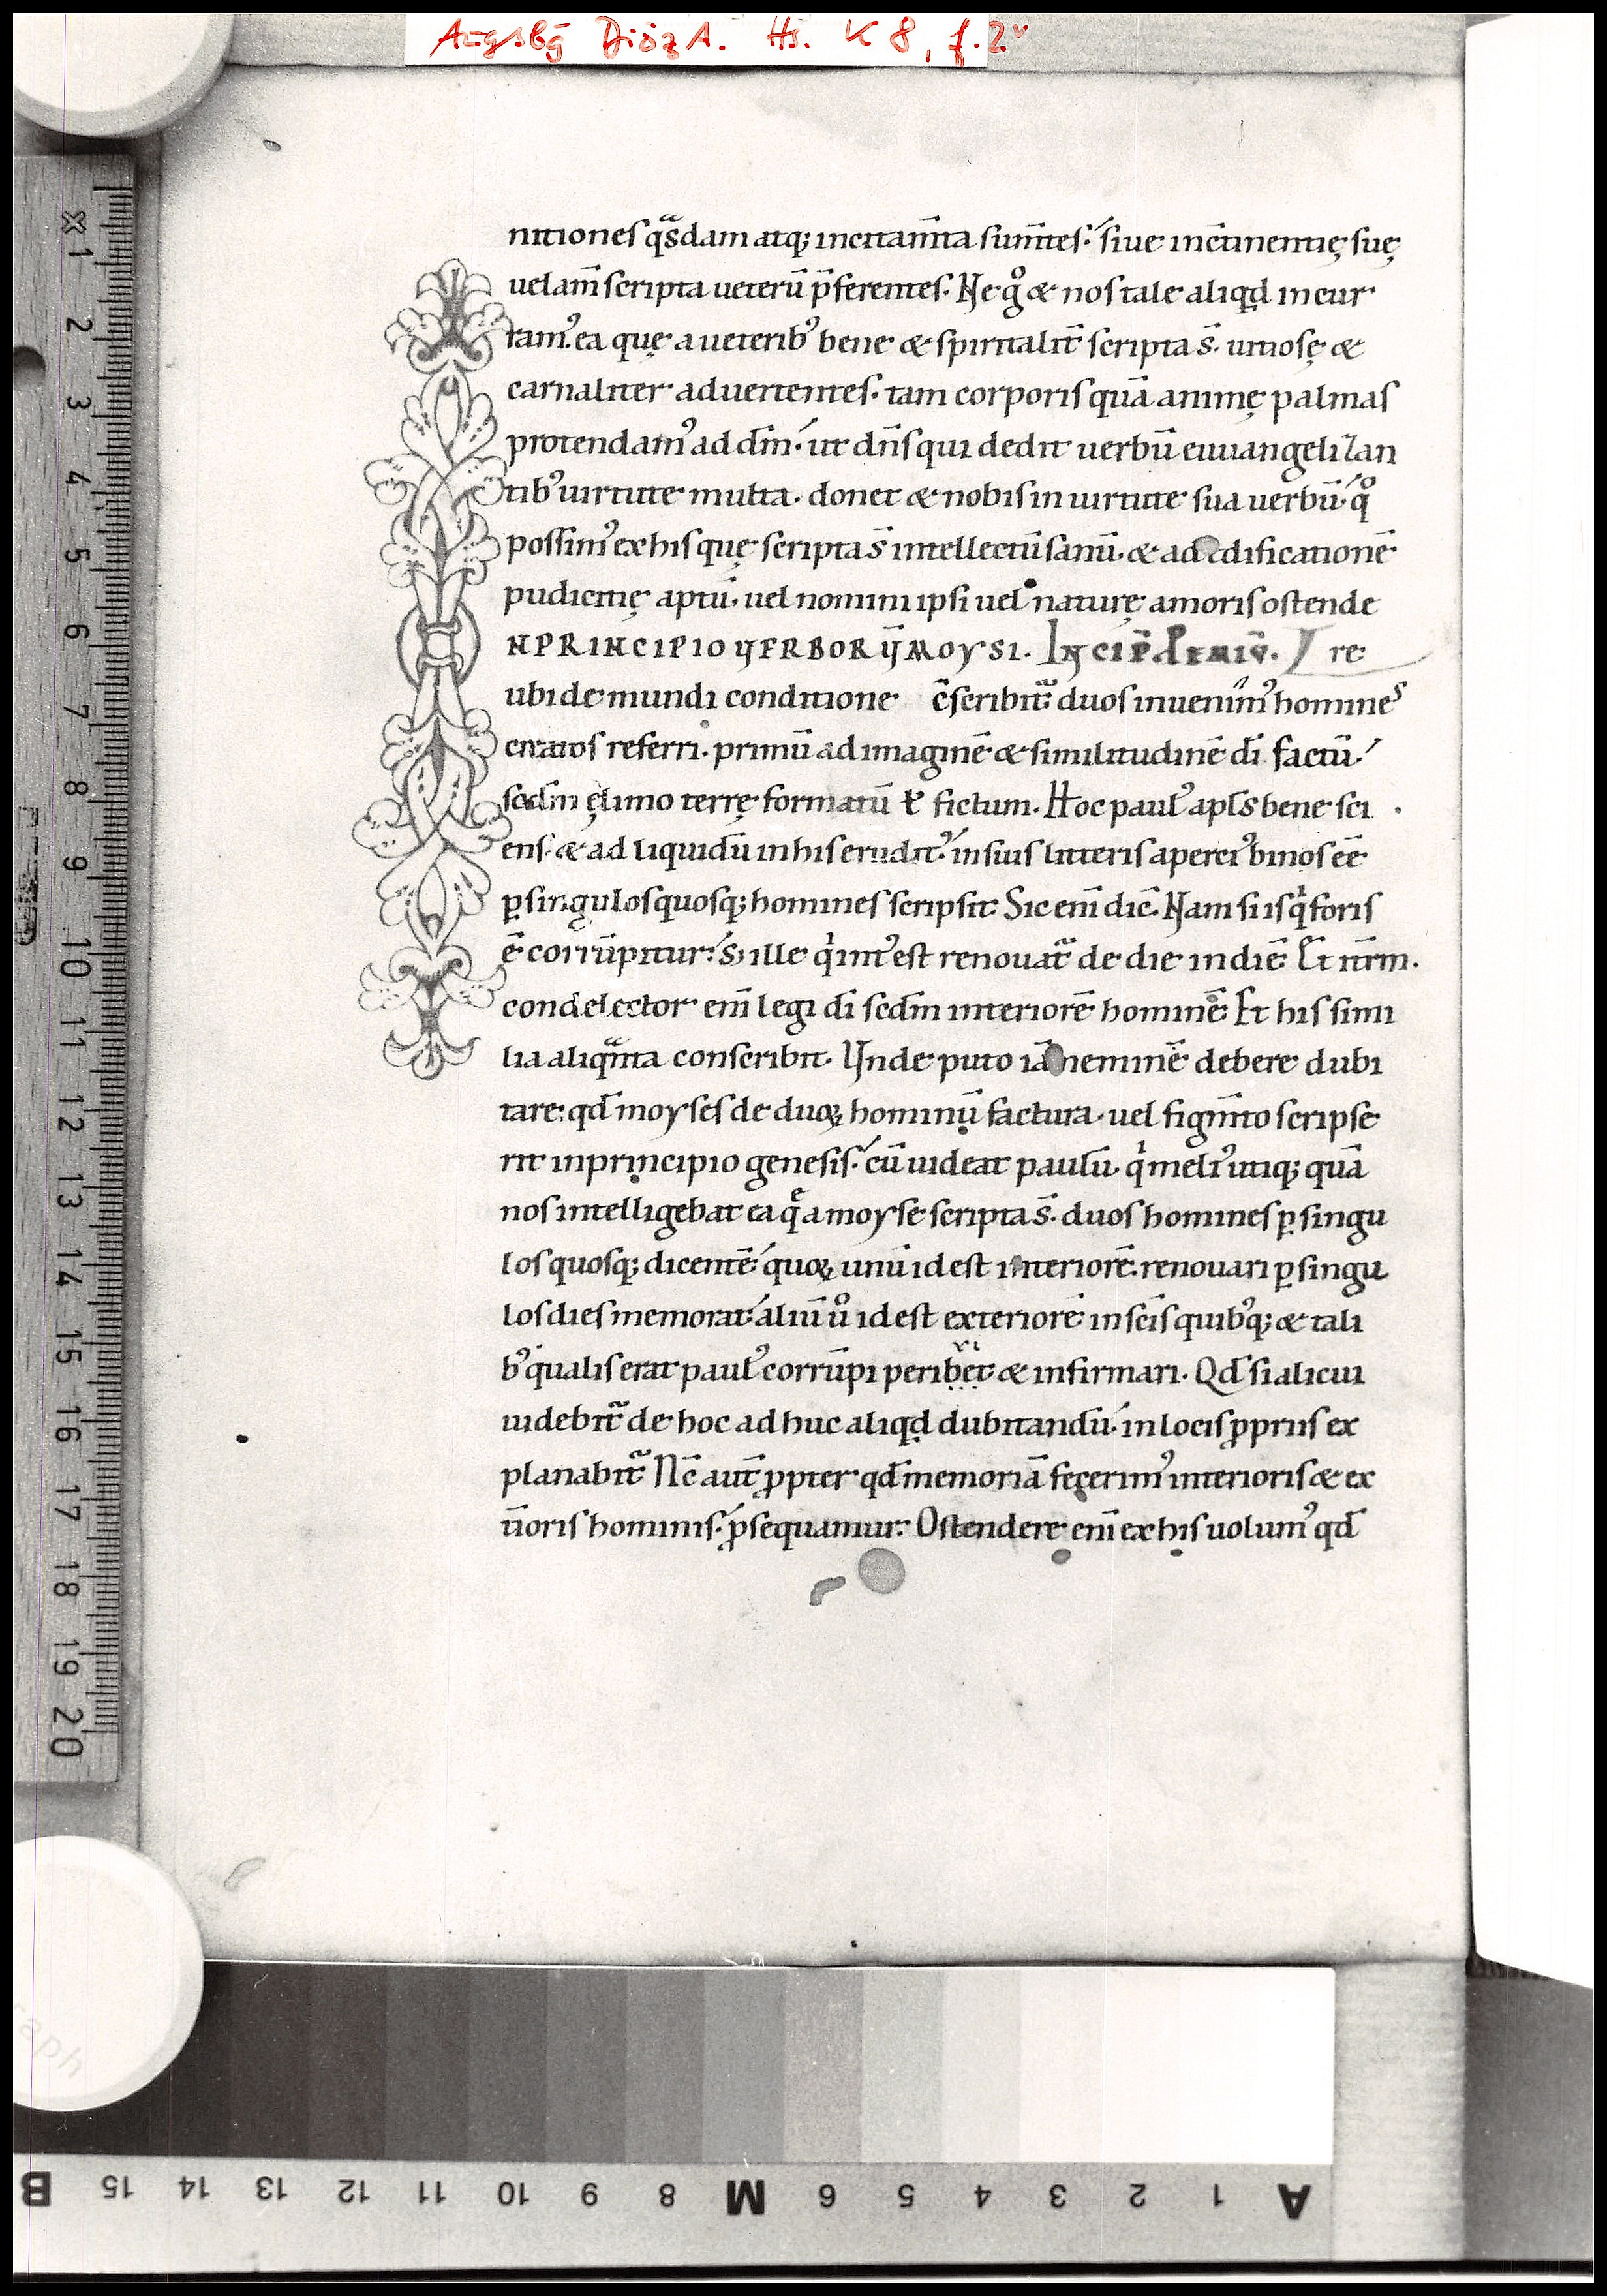 Augsbg DiözA. Hs. K 8, f. 2v
nitiones q̃sdam atq; incitam̄ta sum̄tes. siue inc̄tinentię suę
uelam̄ scripta ueterū p̄ferentes. Ne g̊ & nos tale aliqd incur
ram᾽ ea quę a ueterib᾽ bene & spiritalit̄ scripta s̄. uitiosę &
carnaliter aduertentes. tam corporis quā animę palmas
protendam᾽ ad dm̄. ut dn̄s qui dedit uerbū euuangelizan
tib᾽ uirtute multa. donet & nobis in uirtute sua uerbū. q̊
possim᾽ ex his quę scripta s̄ intellectū sanū. & ad ędificationē
pudicitię aptū. uel nomini ipsi uel naturę amoris ostende
N PRINCIPIO VERBORV̄ MOYSI. INCIP̄. PEMIV̄. re
ubi de mundi conditione c̄scribit̃ duos inuenim᾽ homines
creatos referri. primū ad imaginē & similitudinē di factū.
scdm̄ ęlimo terrę formatū ł fictum. Hoc paul᾽ apls bene sci
ens & ad liquidū in his erudit᾽ in suis litteris aperci᾽ binos eē
p singulos quosq; homines scripsit. Sic eni dic̄. Nam si is q̇ foris
ē corrūpitur. s; ille q̇ int᾽ est renouat̃ de die in diē. Et itm̄.
condelector eni legi di scdm̄ interiorē hominē. Et his simi
lia aliq̃nta conscribit. Unde puto iā neminē debere dubi
tare. qd moyses de duoꝝ hominū factura. uel figm̄to scripse
rit in principio genesis. cū uideat paulū. q̇ meli᾽ utiq; quā
nos intelligebat ea q̄ a moyse scripta s̄. duos homines p singu
los quosq; dicentē. quoꝝ unū id est interiorē. renouari p singu
los dies memorat. aliū ů id est exteriorē in sc̄is quib᾽q; & tali
b᾽ qualis erat paul᾽ corrūpi peribet & infirmari. Qd si alicui
uidebit̃ de hoc ad huc aliqd dubitandū. in locis ꝓpriis ex
planabit̃. Nc̄ aut̄ ꝓpter qd memoriā fecerim᾽ interioris & ex
t̄ioris hominis. ꝓsequamur. Ostendere eni ex his uolum᾽ qd
1
2
3
4
5
6
7
8
9
10
11
12
13
14
15
16
17
18
19
20
B 15 14 13 12 11 10 9 8 M 6 5 4 3 2 1 A